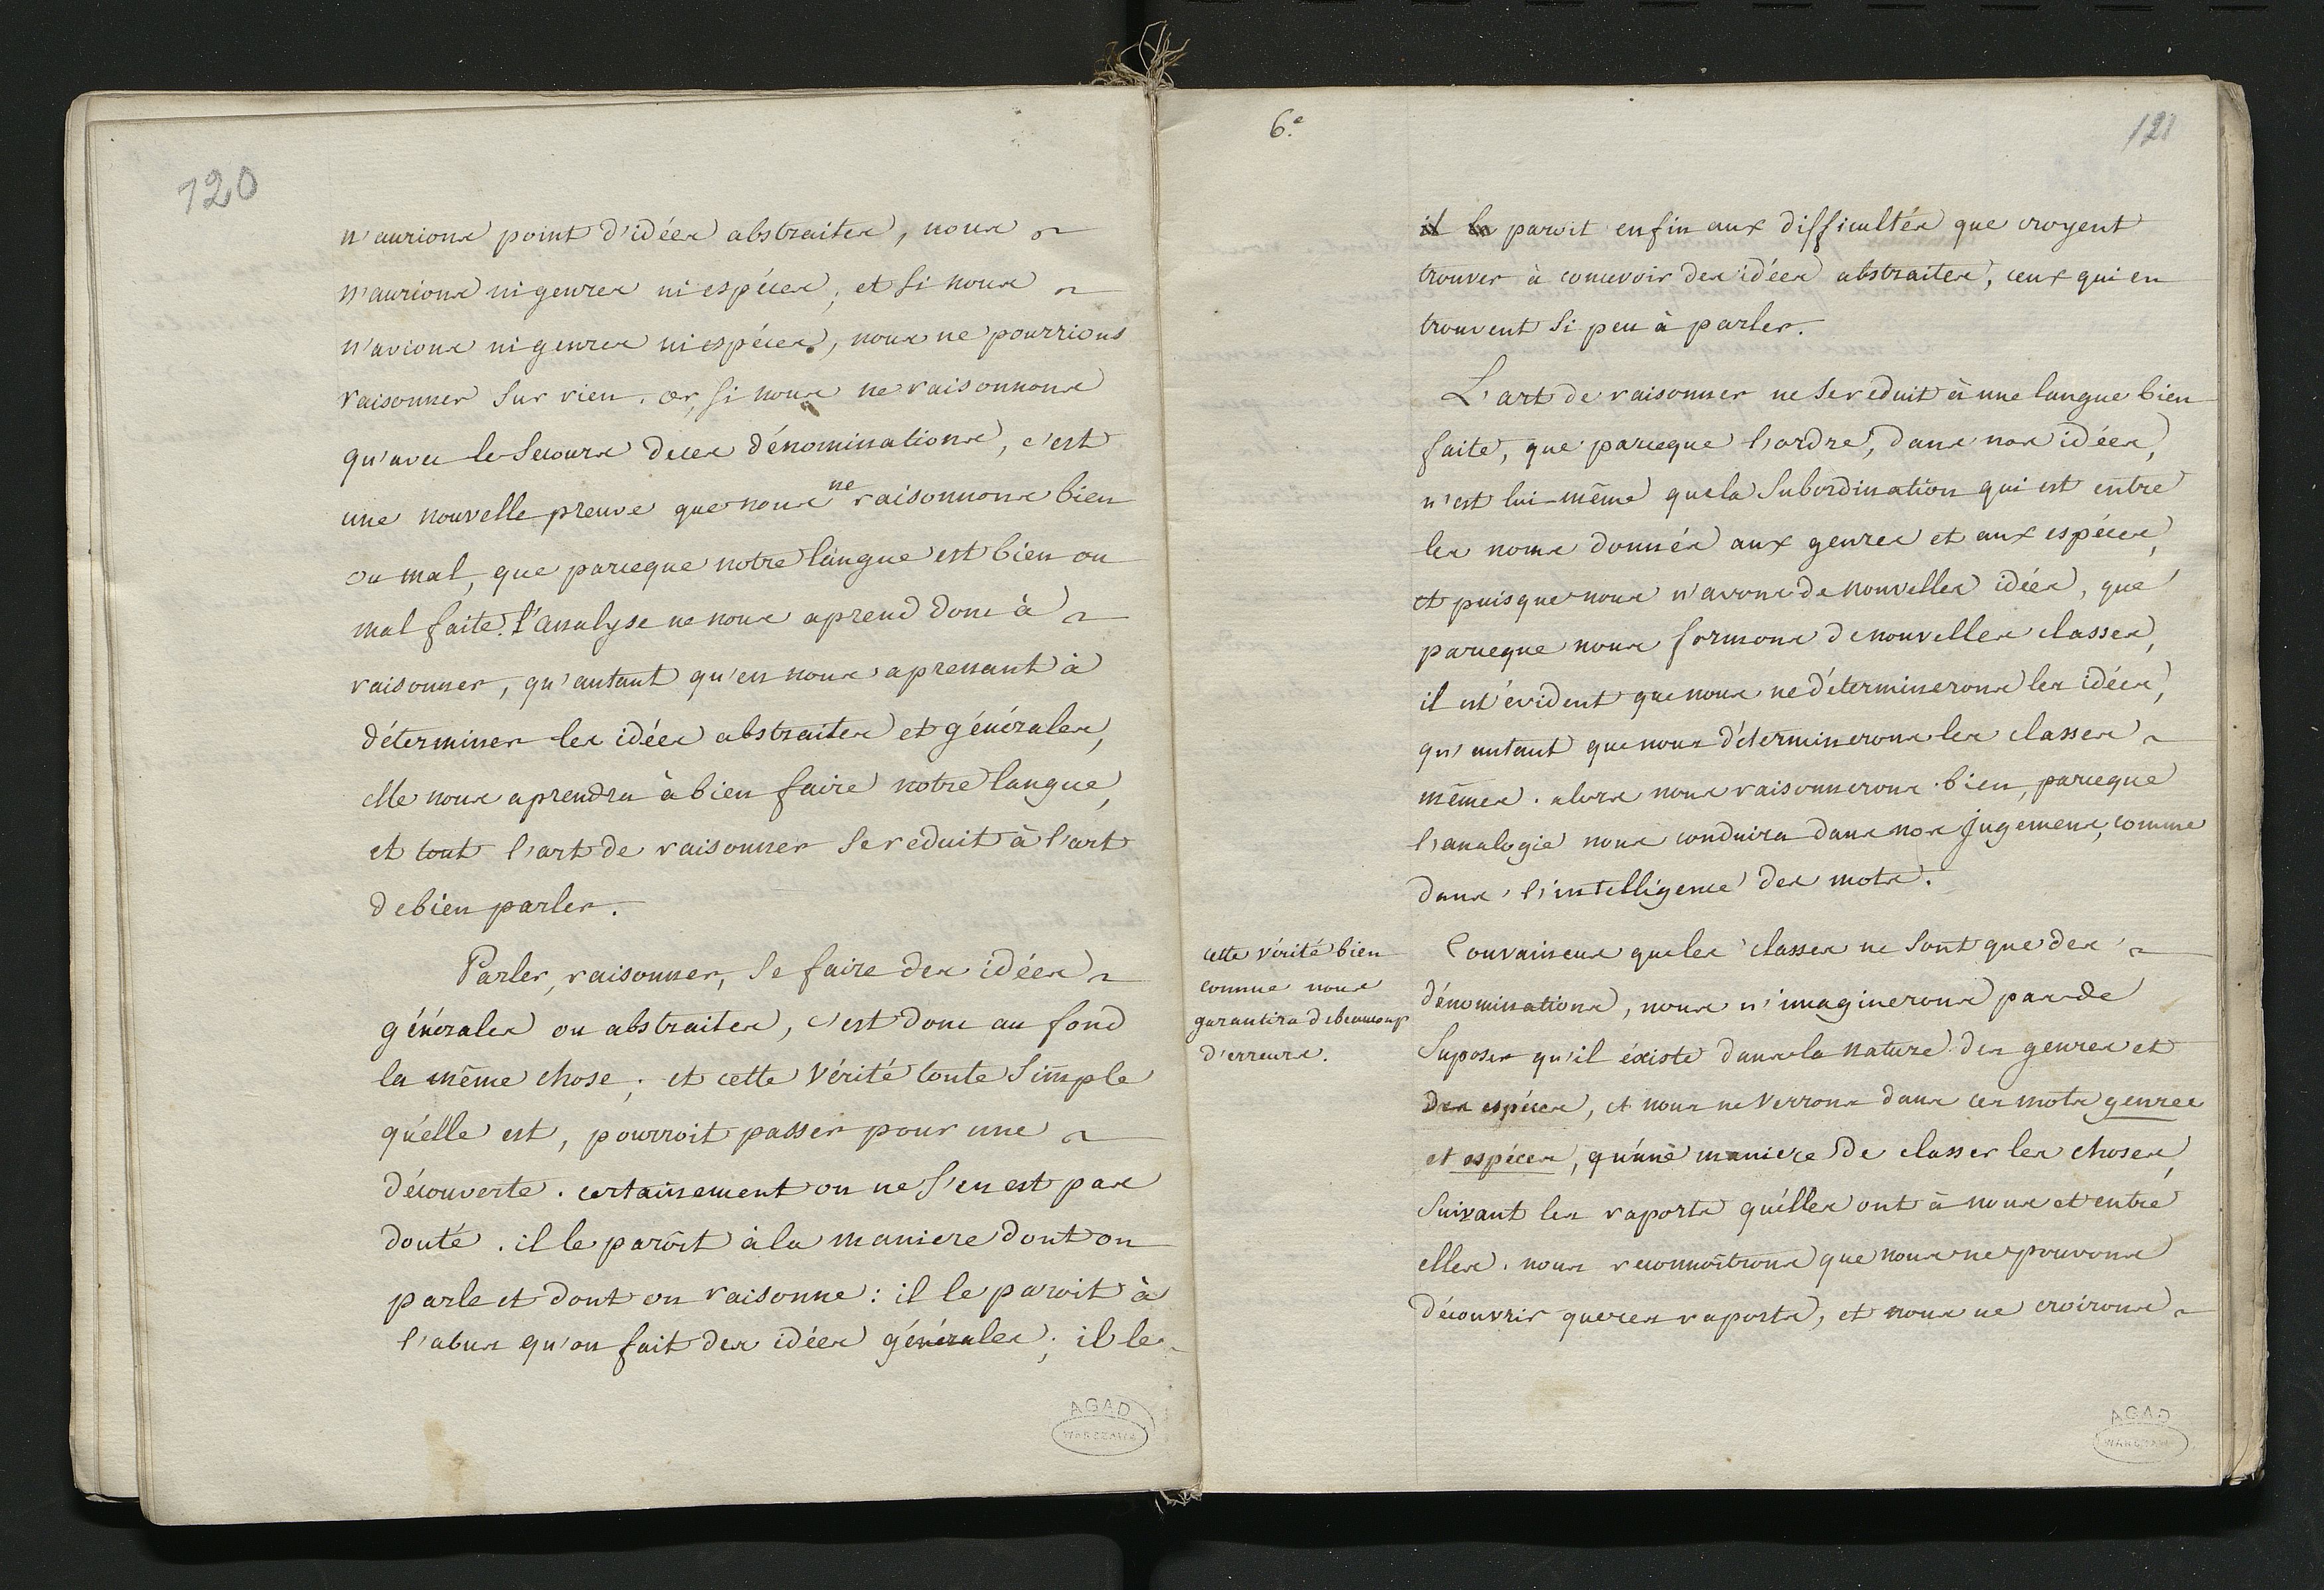 120
n'aurions point d'idées abstraites, nous
n'aurions ni genres ni espéces, et si nous
n'avions ni genres ni espéces, nous ne pourrions
raisonner sur rien. or, si nous ne raisonnons
qu'avec le secours de ces dénominations, c'est
une nouvelle preuve que nous ne raisonnons bien
ou mal, que parceque notre langue est bien ou
mal faite. l'analyse ne nous aprend donc à
raisonner, qu'autant qu'en nous aprenant à
déterminer les idées abstraites et générales,
elle nous aprendra à bien faire notre langue,
et tout l'art de raisonner se reduit à l'art
de bien parler.
Parler, raisonner, se faire des idées
générales ou abstraites, c'est donc au fond
la même chose; et cette vérité toute simple
qu'elle est, pourroit passer pour une
découverte. certainement on ne s'en est pas
douté. il le paroît à la maniere dont on
parle et dont on raisonne: il le paroit à
l'abus qu'on fait des idées générales; il le
AGAD
WARSZAWA
6.e
121
il le paroit enfin aux difficultés que croyent
trouver à concevoir des idées abstraites, ceux qui en
trouvent si peu à parler.
L'art de raisonner ne se reduit à une langue bien
faite, que parceque l'ordre, dans nos idées,
n'est lui-même que la subordination qui est entre
les noms donnés aux genres et aux espéces,
et puisque nous n'avons de nouvelles idées, que
parceque nous formons de nouvelles classes,
il est évident que nous ne déterminerons les idées,
qu'autant que nous déterminerons les classes
mêmes. alors nous raisonnerons bien, parceque
l'analogie nous conduira dans nos jugemens, comme
dans l'intelligence des mots.
cette vérité bien
connue nous
garantira de beaucoup
d'erreurs.
Convaincus que les classes ne sont que des
dénominations, nous n'imaginerons pas de
suposer qu'il éxiste dans la nature des genres et
des espéces, et nous ne verrons dans ces mots genres
et espéces, qu'une maniere de classer les choses,
suivant les raports qu'elles ont à nous et entre
elles. nous reconnoîtrons que nous ne pouvons
découvrir que ces raports, et nous ne croirons
AGAD
WARSZAWA